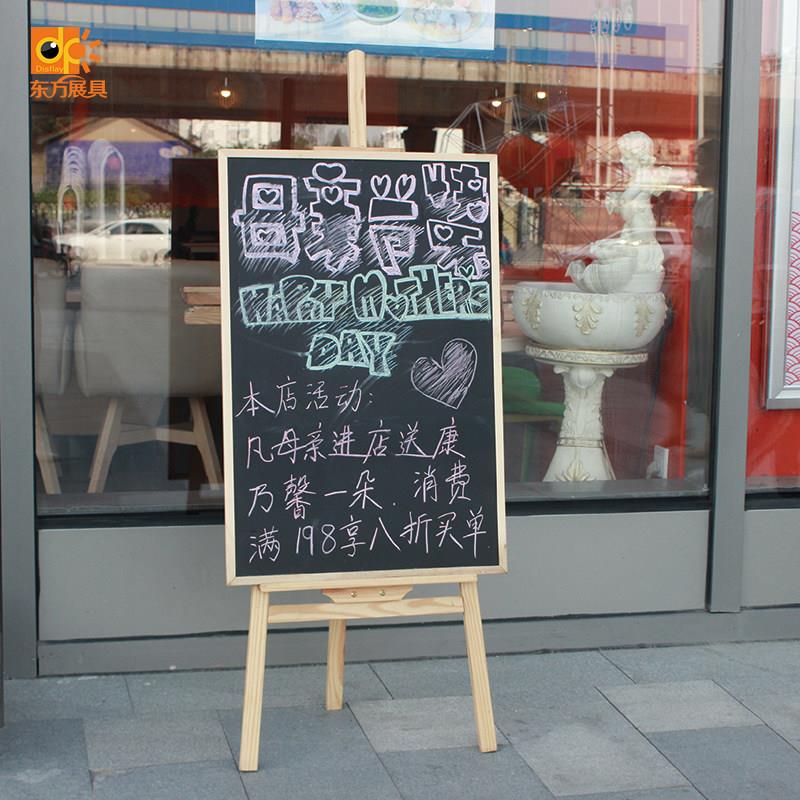 Display
东方展具
母亲节快乐
HAPPY MOTHERS
DAY
本店活动:
凡母亲进店送康
乃馨一朵.消费
满198享八折买单